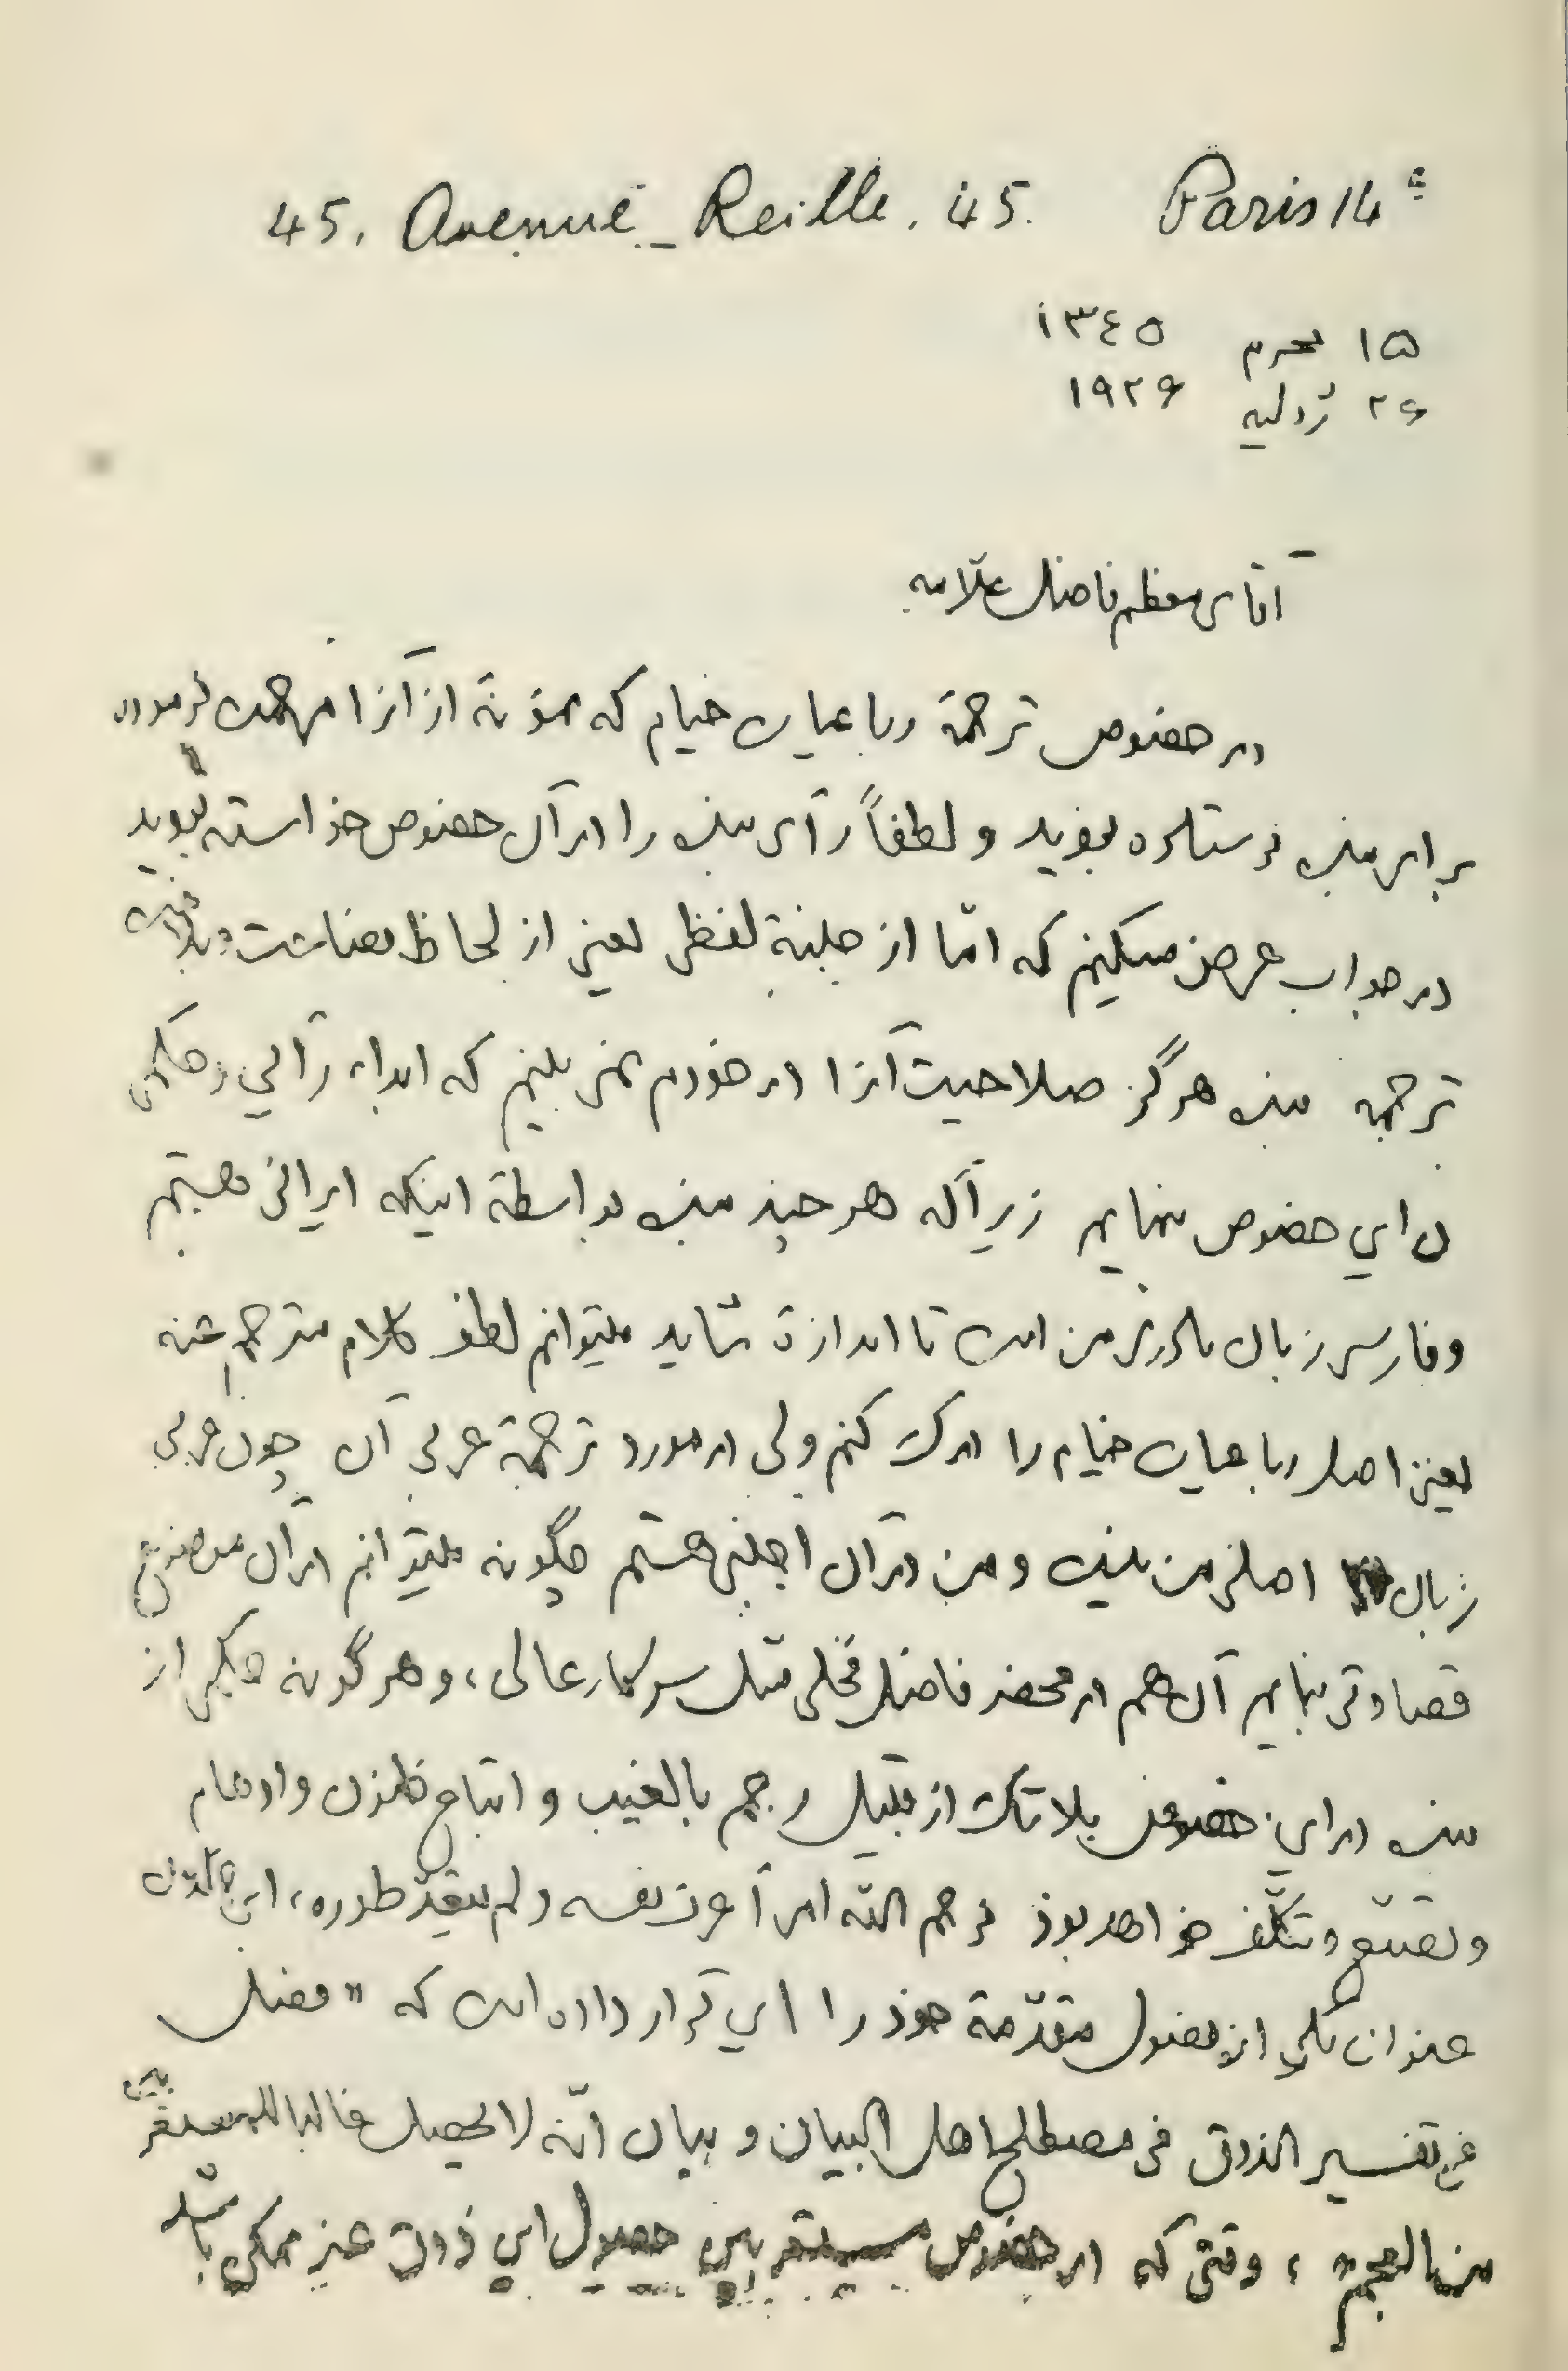 45, Avenue - Reille, 45. Paris 14e
۱۵ محرم ۱۳٤۵
۲۶ ژولیه ۱۹۲۶
آقای معظم فاضل علامه
در خصوص ترجمهٔ رباعیات خیام که نمونهٔ از آنرا مرحمت فرموده
برای بنده فرستاده بودید و لطفاً رأی بنده را در آن خصوص خواسته بودید
در جواب عرض میکنیم که امّا از جنبهٔ لفظی یعنی از لحاظ فصاحت و بلاغت
ترجمه بنده هرگز صلاحیت آنرا در خودم نمی بینم که ابداء رأیی و حکمی
در این خصوص بنمایم زیرا که هر چند بنده بواسطهٔ اینکه ایرانی هستم
و فارسی زبان مادری من است تا اندازهٔ شاید میتوانم لطف کلام مترجم عنه
یعنی اصل رباعیات خیام را درک کنم ولی در مورد ترجمهٔ عربی آن چون عربی
زبان اصلی من نیست و من در آن اجنبی هستم چگونه میتوانم در آن موضوع
قضاوتی بنمایم آن هم در محضر فاضل فحلی مثل سرکار عالی، و هر گونه حکمی از
بنده در این خصوص بلا شک از قبیل رجم بالغیب و اتباع ظنون و اوهام
و تصنّع و تکلّف خواهد بود فرحم الله امرأ عرف نفسه و لم یتعدّ طوره، ابن خلدون
عنوان یکی از فصول مقدّمهٔ خود را این قرار داده است که «فصل
فی تفسیر الذوق فی مصطلح اهل البیان و بیان انّه لا یحصل غالبا للمستعربین
من العجم»، وقتی که در خصوص مستعربین حصول این ذوق غیر ممکن باشد